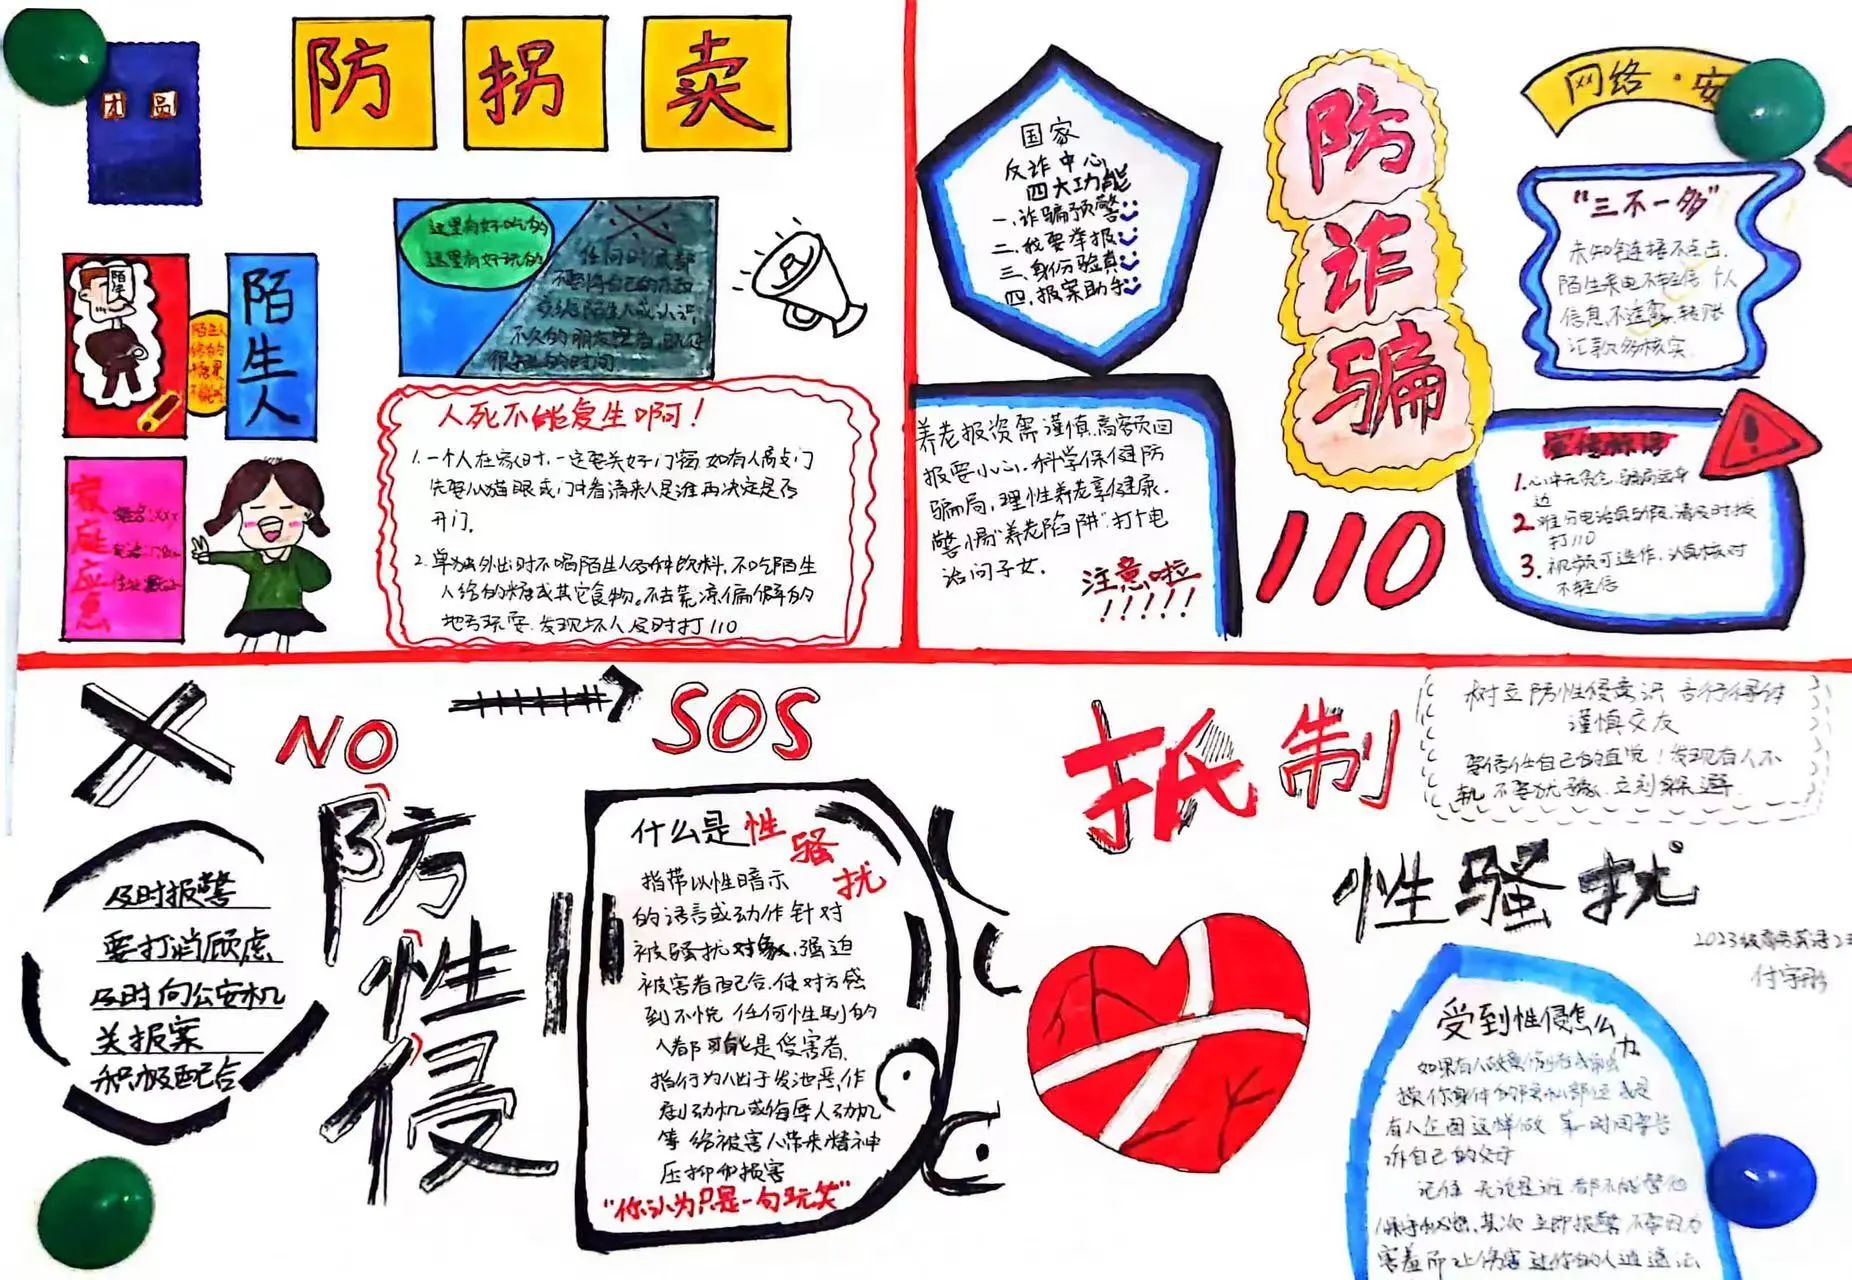 防拐卖
陌生人
陌生人
这里有好吃的
这里有好玩的
任何时候都
不要将自己的
陌生人或认识
不久的朋友
很短的时间
家庭应急
人死不能复生啊!
1.一个人在家时,一定要关好门窗,如有人敲门
先要从猫眼或门外看清来人是谁再决定是否
开门。
2.单独外出时不喝陌生人的饮料,不吃陌生
人给的糖或其它食物。不去荒凉偏僻的
地方玩耍.发现坏人及时打110
国家
反诈中心
四大功能
一.诈骗预警
二.我要举报
三.身份验真
四.报案助手
防诈骗
110
网络·安
“三不一多”
未知链接不点击,
陌生来电不轻信 个人
信息不透露,转账
汇款多核实.
养老投资需谨慎,高额回
报要小心.科学保健防
骗局,理性养老享健康.
警惕“养老陷阱”打电
话问子女.
注意啦
!!!!!
1.心中无贪念,骗局远身
边
2.难分电话真与假,请及时拨
打110
3.视频可造作,认真核对
不轻信
NO
SOS
防性侵
及时报警
要打消顾虑
及时向公安机
关报案
积极配合
什么是性骚扰
指带以性暗示
的语言或动作针对
被骚扰对象,强迫
被害者配合,使对方感
到不悦 任何性别的
人都可能是受害者.
指行为人出于发泄恶,作
剧动机或侮辱人动机
等 给被害人带来精神
压抑和损害
“你认为只是一句玩笑”
抵制
性骚扰
树立防性侵意识 言行得体
谨慎交友
要信任自己的直觉!发现有人不
轨 不要犹豫、立刻躲避.
2023级商务英语2
受到性侵怎么办
如果有人故意
摸你身体的隐私部位 或是
有人企图这样做 第一时间要告
诉自己的父母
记住 无论是谁 都不能替他
保守秘密,其次 立即报警 不要因为
害羞而让伤害过你的人逍遥法